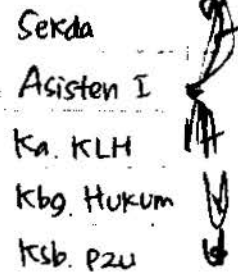 Sekda
Asisten I
Ka. KLH
Kbg. Hukum
Ksb. PZU